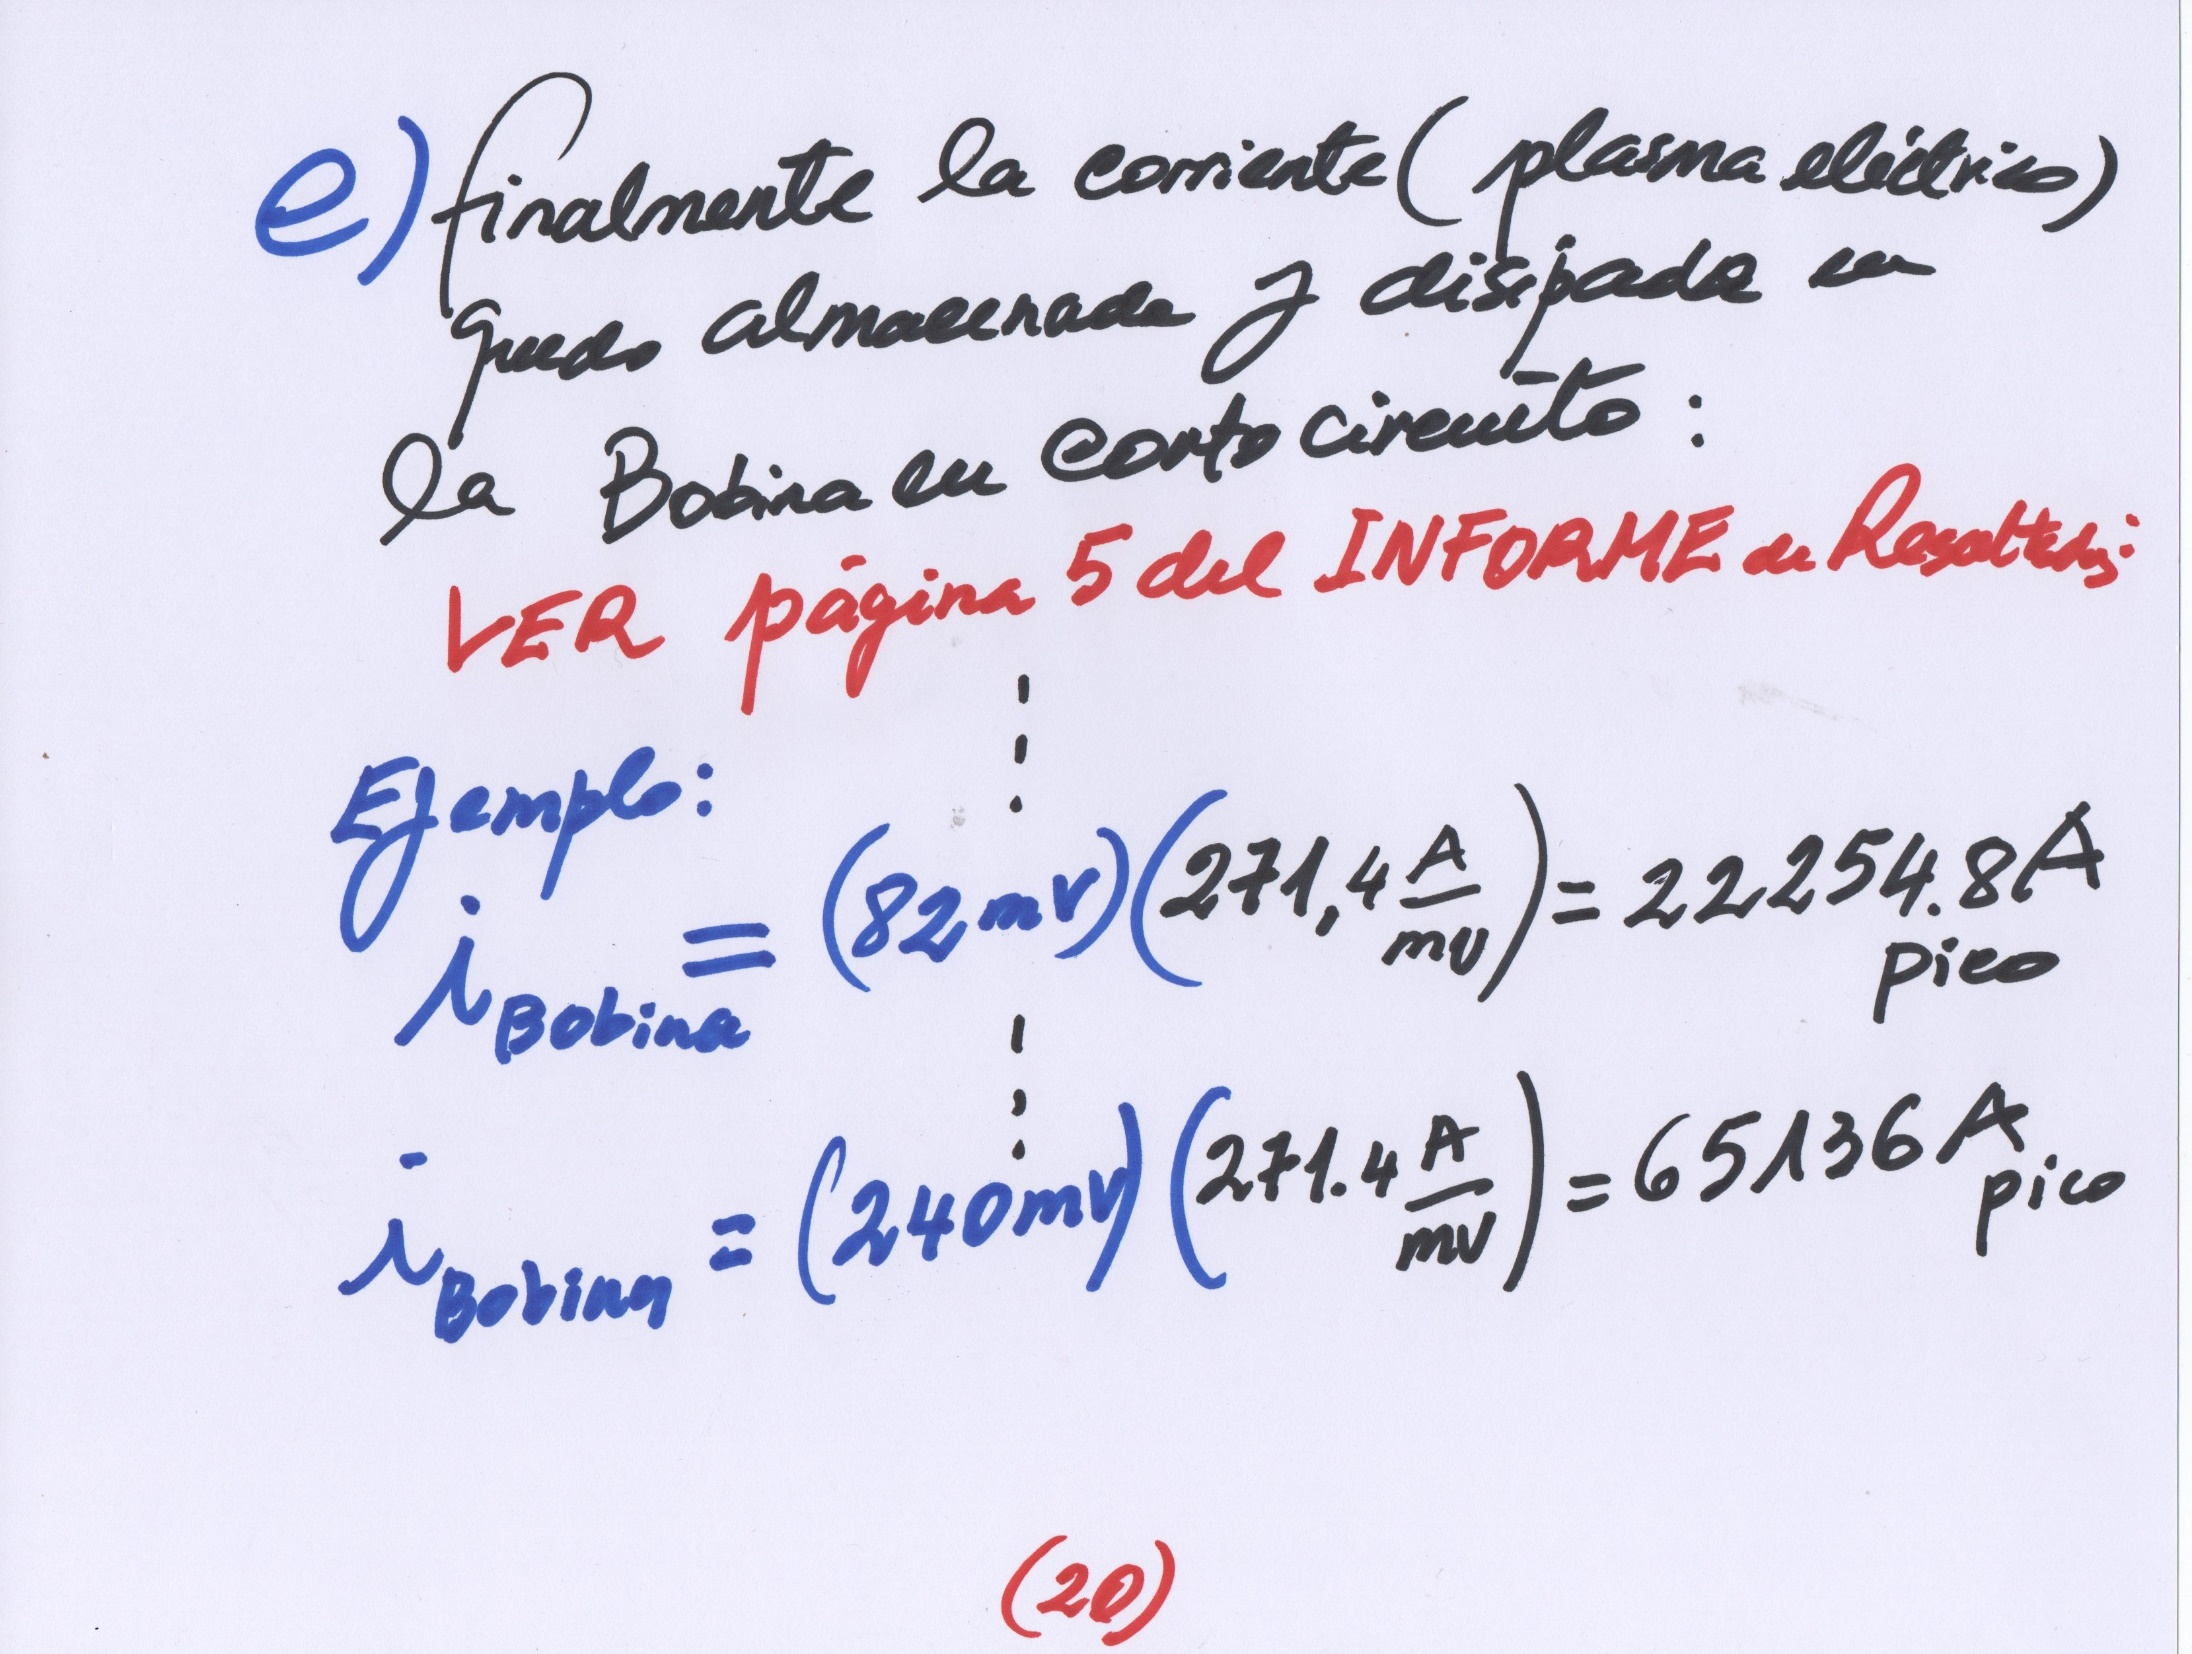 e) finalmente la corriente (plasma eléctrico)
quedo almacenada y disipada en
la Bobina en corto circuito :
VER página 5 del INFORME de Resultados:
Ejemplo:
i Bobina = (82 mV) (271,4 A/mV) = 22254.8 A pico
i Bobina = (240 mV) (271.4 A/mV) = 65136 A pico
(20)